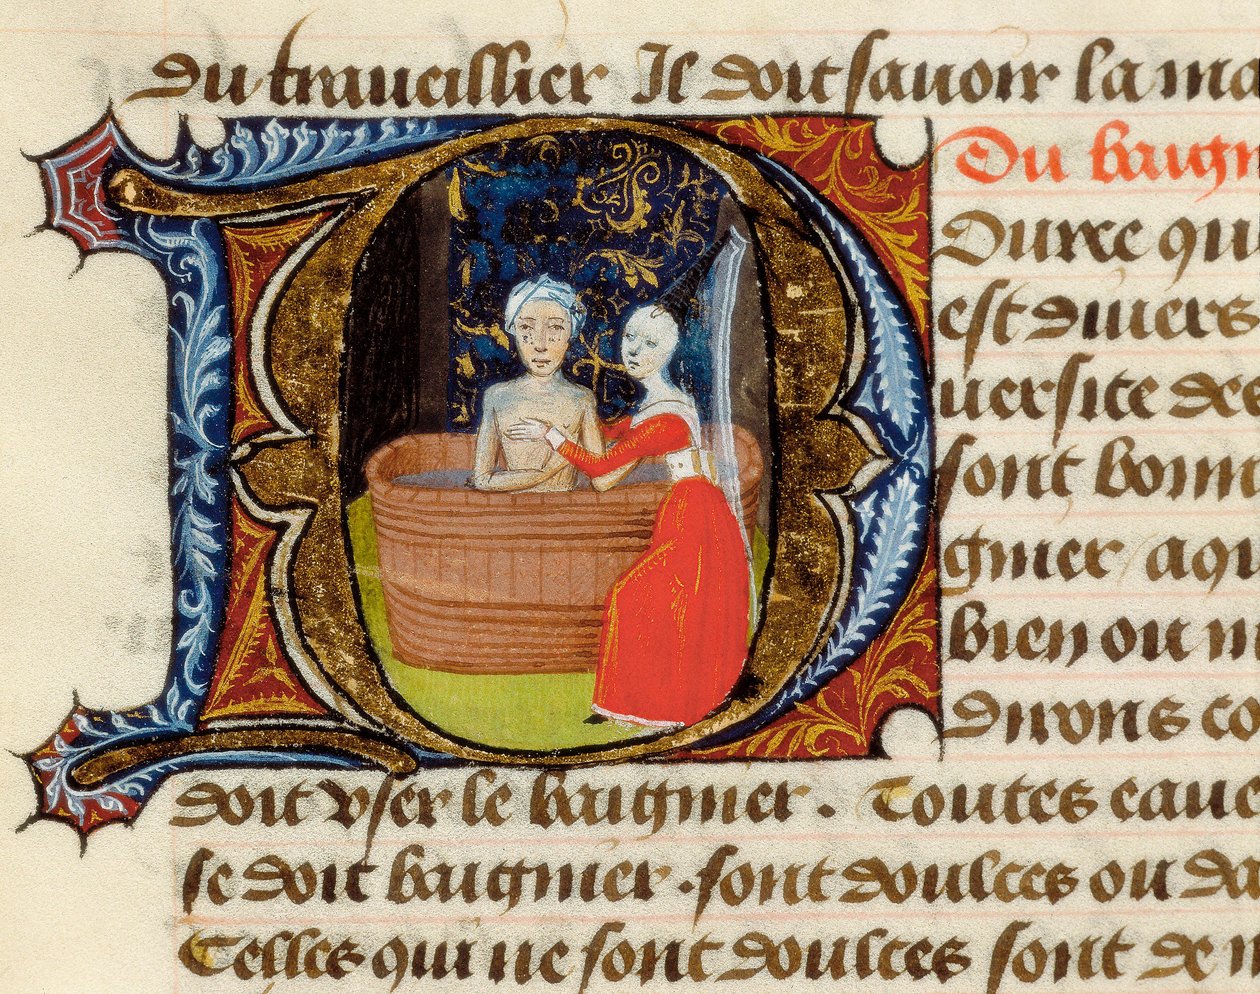 du traueillier Il doit sauoir la ma
Du baign
Ource qu
est diuers
uersite de
sont bonn
gnier / aqu
bien ou m
dirons co
doit vser le baignier . Toutes eaue
se doit baignier . sont doulces ou
Telles qui ne sont doulces sont de